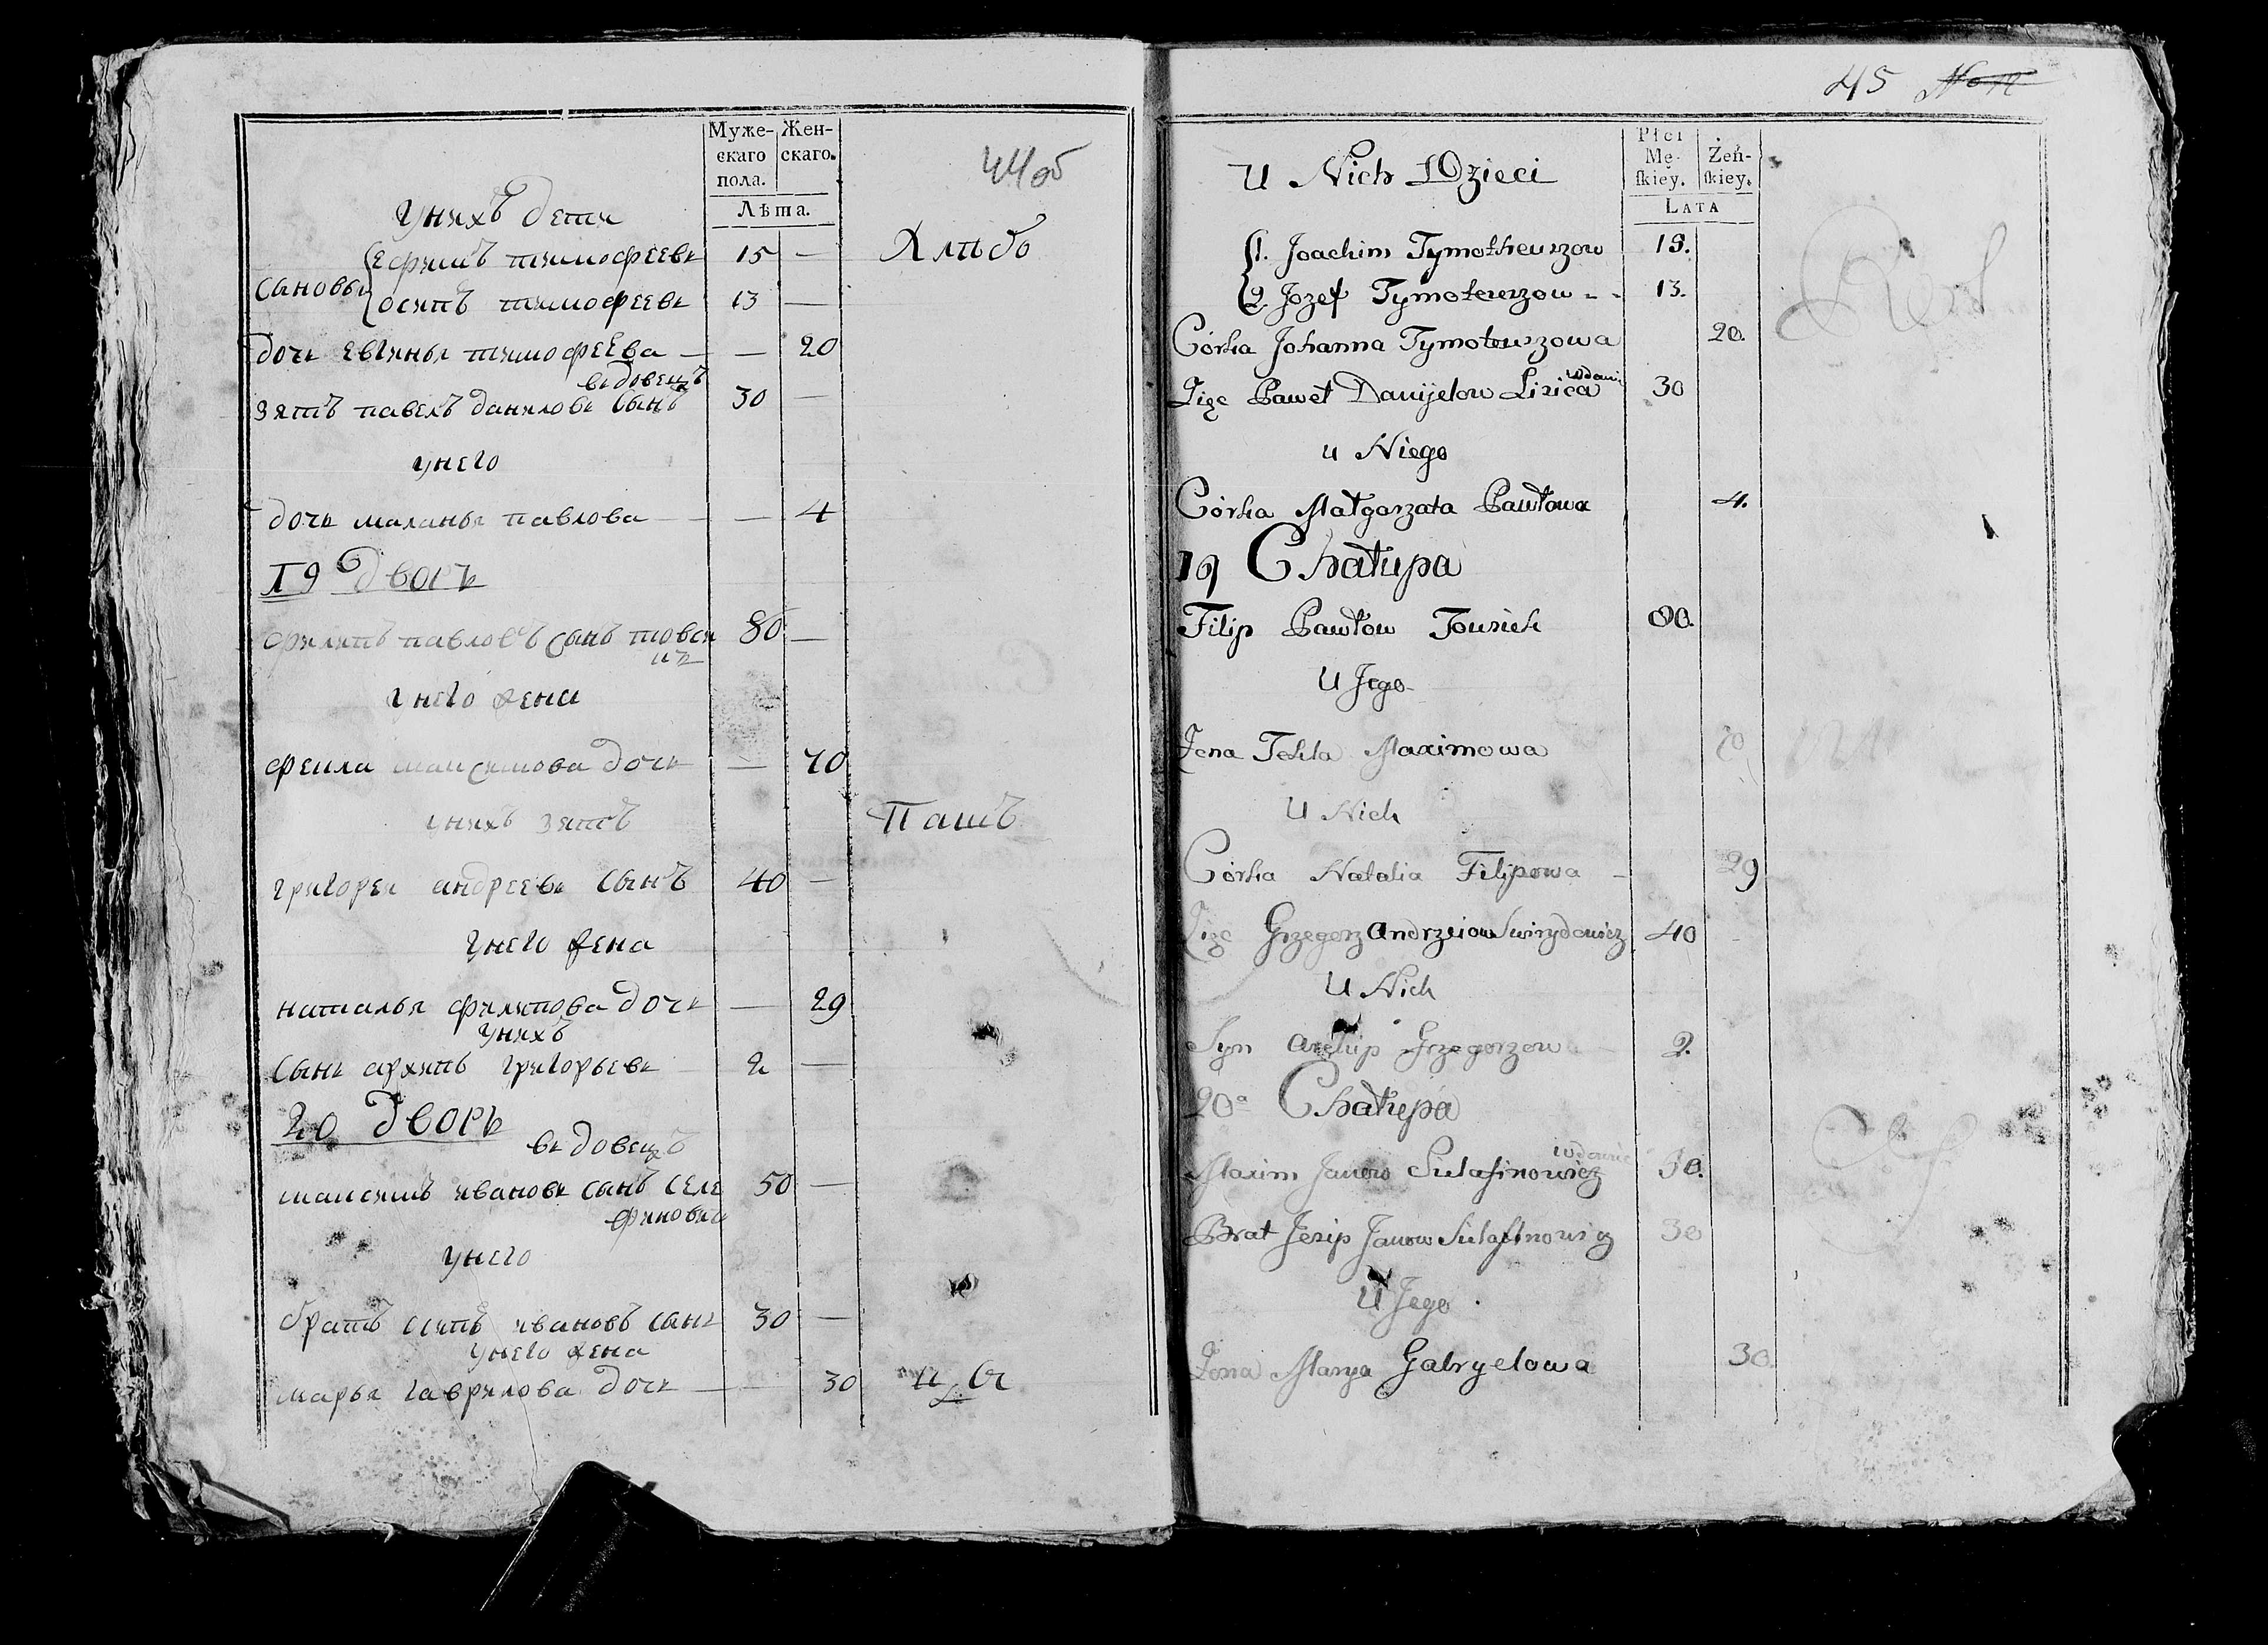 Муже-
скаго
пола.
Жен-
скаго.
Лѣта.
44об
Унихъ дети
Сановья
Ефимъ тимофеевъ 15 —
осипъ тимофеевъ 13 —
Хлѣбо
дочь евгинья тимофеева — — 20
въдовецъ
зятъ павелъ даниловъ сынъ 30 —
унего
дочь маланья павлова — — 4
19 дворъ
филипъ павловъ сынъ товси 80 —
унего жена
фекла максимова дочь — 70
унихъ зятъ
Пашъ
григореи андреевъ сынъ 40 —
унего жена
наталья филипова дочь — 29
унихъ
сынъ архипъ григорьевъ 2 —
20 дворъ
въдовецъ
максимъ ивановъ сынъ селе 50 —
финовичь
унего
братъ осипъ ивановъ сынъ 30 —
унего жена
марья гаврилова дочь — — 30
45
Płci
Mę-
skiey.
Żeń-
skiey.
LATA
U Nich Dzieci
1. Joachim Tymotheuszow 15.
2. Jozef Tymoteuszow - - 13.
Córka Johanna Tymoteuszowa 20.
Zięc Paweł Danijelow 30
u Niego
Córka Małgorzata Pawłowa 4.
19 Chałupa
Filip Pawłow Towsich 80.
U Jego
Zona Tekla Maximowa 70
U Nich
Córka Natalia Filipowa - 29
Zięc Grzegorz Andrzeiow Swirydowicz 40 -
U Nich
Syn Archip Grzegorzow 2.
20a Chałupa
Maxim Janow 50.
Brat Jesip Janow 30
U Jego
Zona Marya Gabryelowa 30.